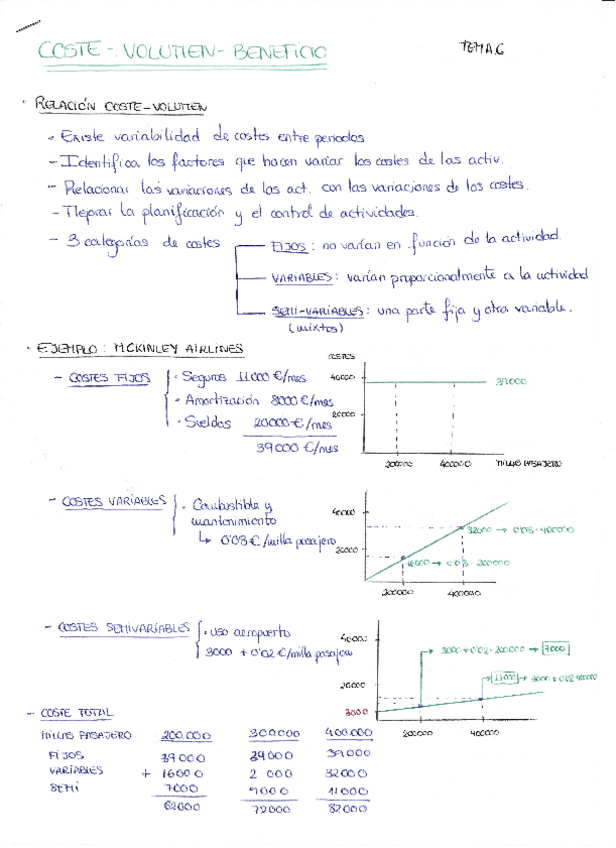 COSTE - VOLUMEN - BENEFICIO
TEMA 6
· RELACIÓN COSTE-VOLUMEN
- Existe variabilidad de costes entre periodos
- Identifica los factores que hacen variar los costes de las activ.
- Relacionar las variaciones de las act. con las variaciones de los costes.
- Mejorar la planificación y el control de actividades.
- 3 categorías de costes
FIJOS: no varían en función de la actividad.
VARIABLES: varían proporcionalmente a la actividad
SEMI-VARIABLES: una parte fija y otra variable.
(mixtos)
· EJEMPLO: MCKINLEY AIRLINES
- COSTES FIJOS
· Seguros 11000 €/mes
· Amortización 8000 €/mes
· Sueldos 20000 €/mes
39000 €/mes
COSTES
40000
20000
39000
200000 400000 MILLAS PASAJERO
- COSTES VARIABLES
· Combustible y
mantenimiento
↳ 0'08 €/milla pasajero
40000
20000
32000 → 0'08 · 400000
16000 → 0'08 · 200000
200000 400000
- COSTES SEMIVARIABLES
· uso aeropuerto
3000 + 0'02 €/milla pasajero
40000
20000
3000
3000 + 0'02 · 200000 → 7000
11000 → 3000 + 0'02 · 400000
200000 400000
- COSTE TOTAL
MILLAS PASAJERO 200.000 300000 400.000
FIJOS 39000 39000 39000
VARIABLES + 16000 2 000 32000
SEMI 7000 9000 11000
62000 72000 82000